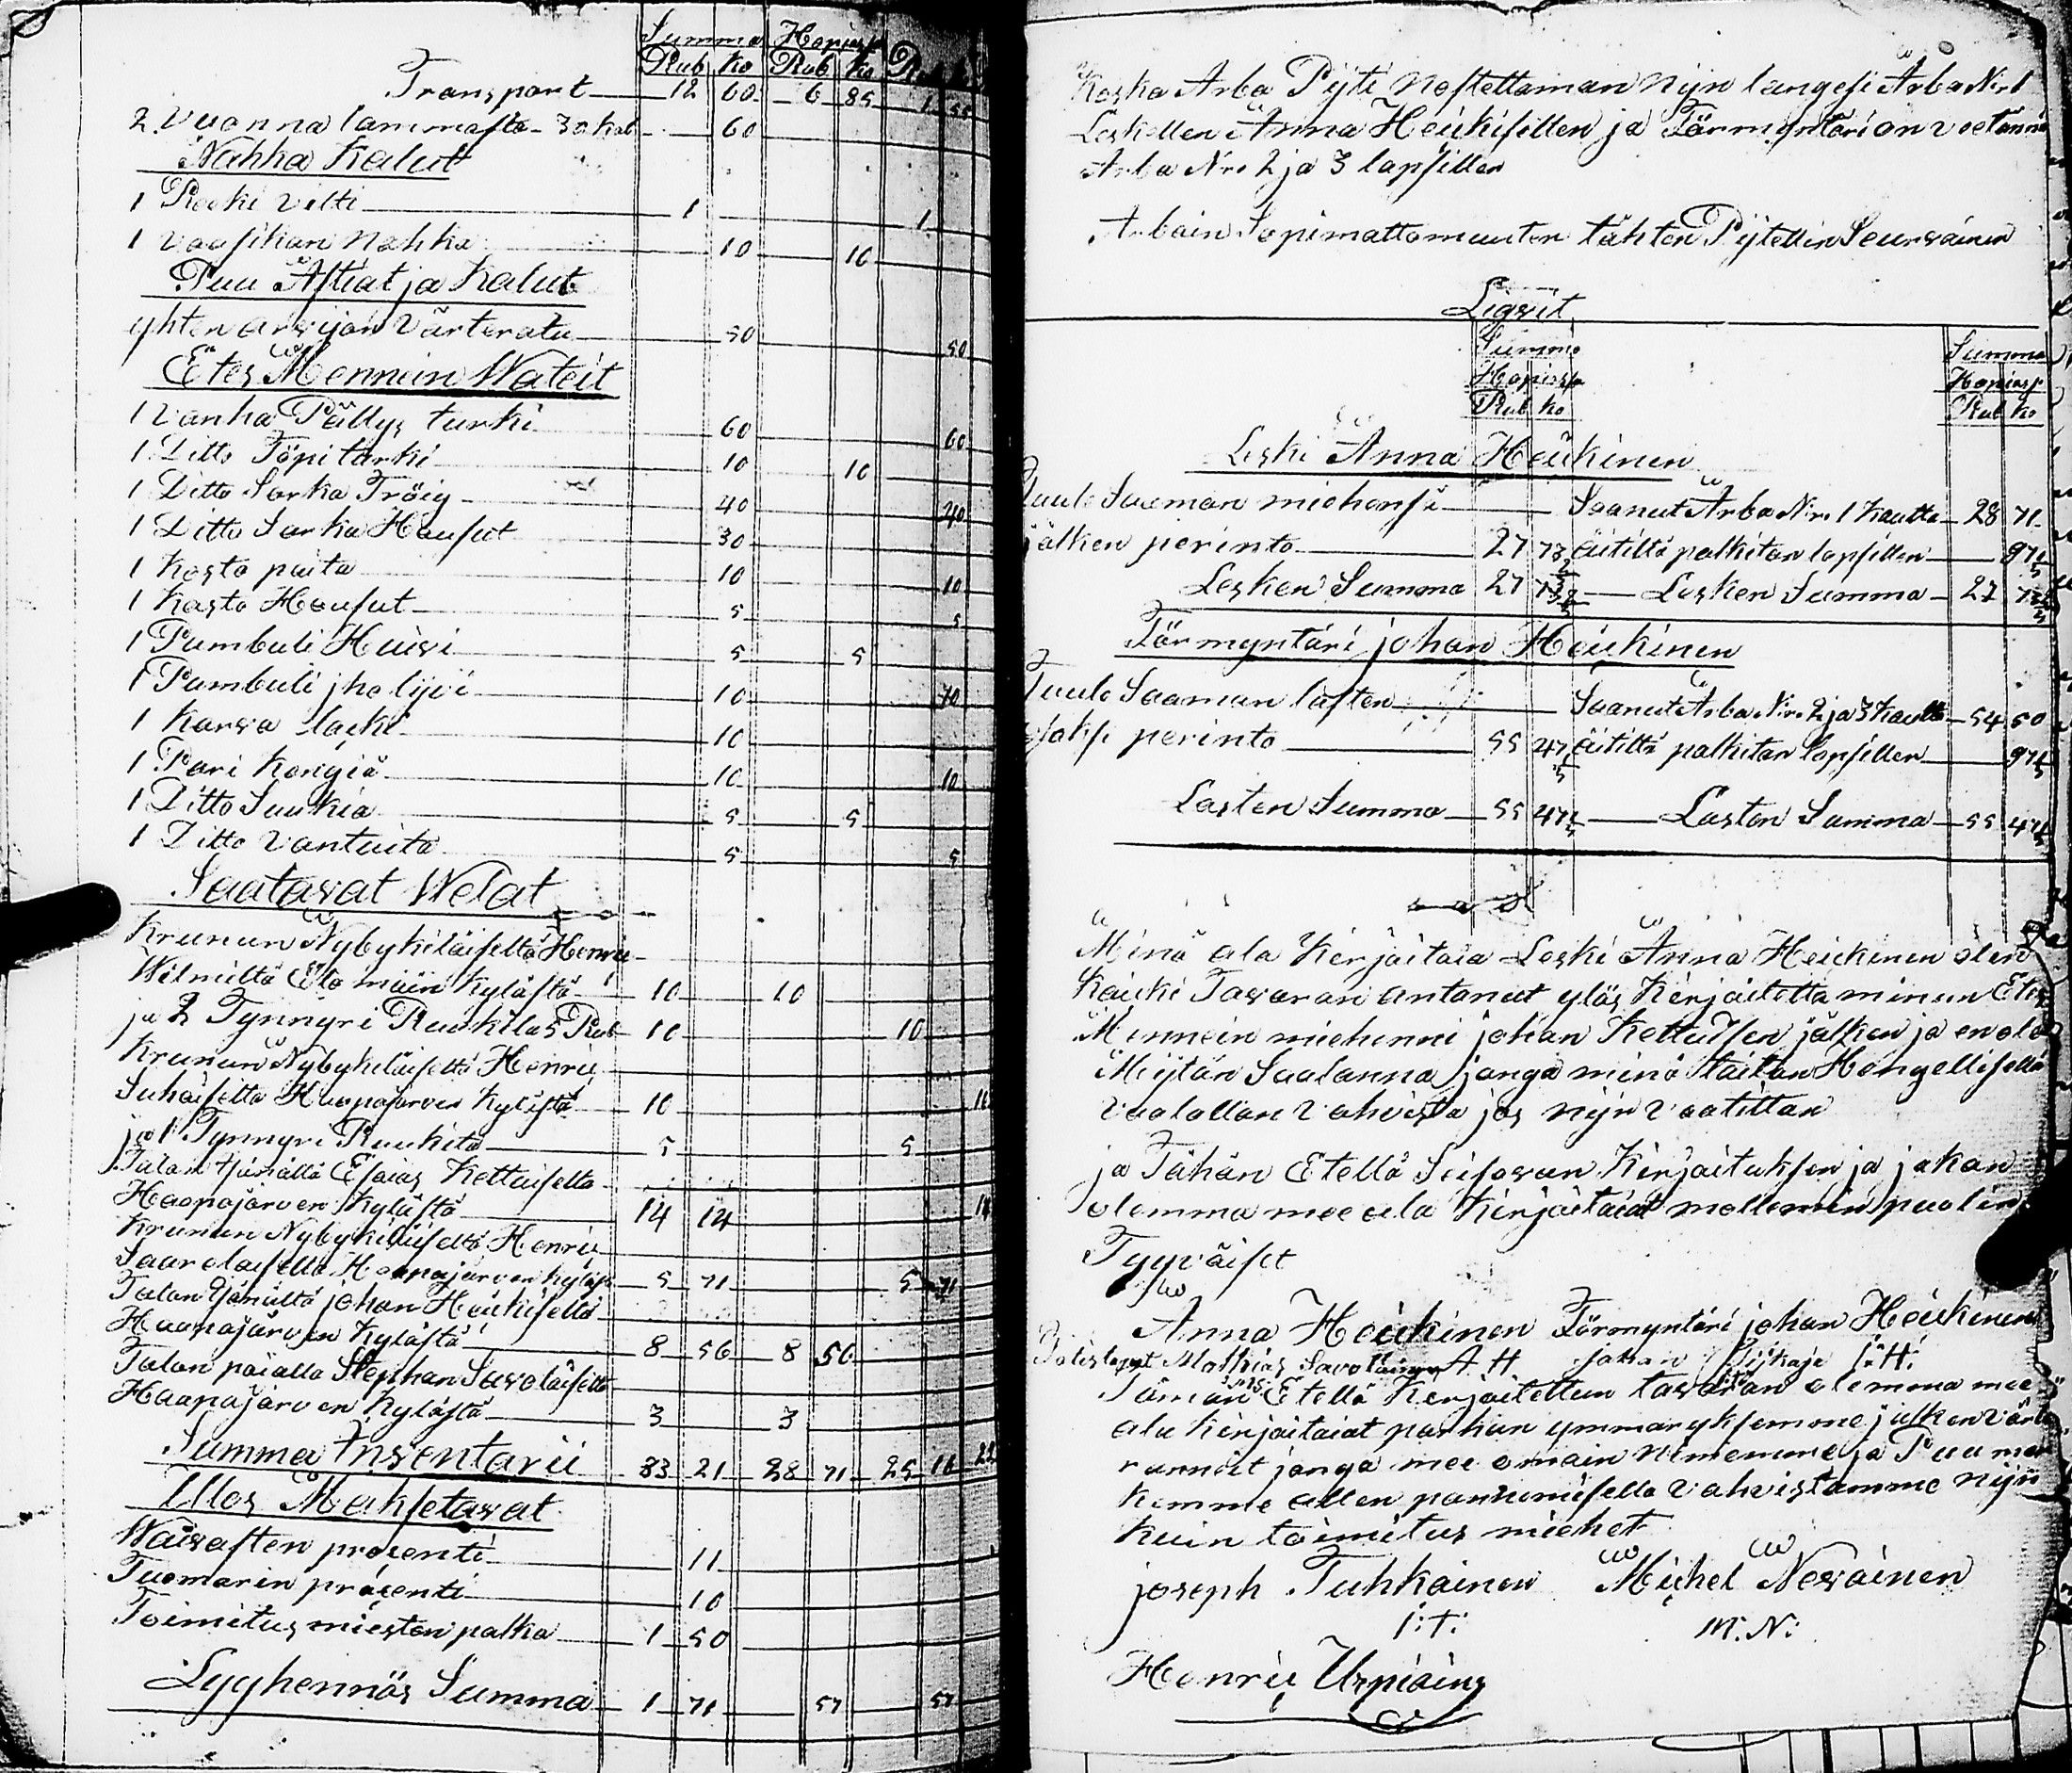 Summa Hopiasa
Rub ko Rub ko
Transport 12 60 6 85 1
2 Vuonna lammasta 30 kol 60
Nahka Kalut
1 Reeki vilti 1 1
1 Vaasikan Nahka 10 10
Puu Astiat ja Kalut
yhten arvijon värterata 50 50
Etes Mennein Wateit
1 Vanha Pällys turki 60 60
1 Ditto Töpi turki 10 10
1 Ditto Sarka Tröig 40 40
1 Ditto Sarka Housut 30
1 Kosto paita 10 10
1 Kasto Housut 5 5
1 Pumbuli Huivi 5 5
1 Pumbuli jholijvi 10 10
1 Karva lacki 10
1 Pari Kengiä 10 10
1 Ditto Sukia 5 5
1 Ditto Vantuita 5 5
Saatavat Welat
Krunun Nybykiläiseltä Henric
Wilmiltä Elo mäin Kylästä 10 10
ja 2 Tynnyri Ruukilas Rub 10 10
Krunun Nybykiläiseltä Henric
Suhaiselta Haapajärven Kylästä 10
ja 1 Tynnyri Ruukita 5 5
Talan Isänällä Esaias Kettuiselta
Haapajärven Kylästä 14 14
Krunun Nybykiläiseltä Henric
Saarelaiselta Haapajärven Kyläst 5 71 5 71
Talan Isänältä johan Heickiseltä
Haapajärven Kylästä 8 56 8 56
Talan päialla Stephan Savolaiselta
Haapajärven Kylästä 3 3
Summa Inventarii 83 21 28 71 25
Ulos Maksetavat
Waivasten procenti 11
Tuomarin procenti 10
Toimitus miesten palka 1 50
Lyyhennös Summa 1 71 57 57
Koska Arba Pijti Nostettaman Nijn langesi Arba Nr 1
Leskellen Anna Heickisellen ja Förmyntäri on vetänn
Arba Nr. 2 ja 3 lapsillen
Arbain Sopimattomuuten tähten Pijtettin Seuravainen
Ligvit
Summa Summa
Hopiasa Hopiasa
Rub ko Rub ko
Leski Anna Heickinen
Tuule Saaman miehensä Saanut Arba Nr. 1 Kautta 28 71
jälken perinto 27 73 äitiltä palkitan lapsillen 97
Lesken Summa 27 73 Lesken Summa 27 73
Förmyntäri johan Heickinen
Tuule Saaman lasten Saanut Arba Nr. 2 ja 3 Kautta 54 50
perinto 55 47 äitiltä palkitan lapsillen 97
Lasten Summa 55 47 Lasten Summa 55 47
Minä ala Kirjaitaia Leski Anna Heickinen olen
Kaicki Tavaran antanut ylös Kirjaitetta minun Etes
Mennein miehenni johan Kettuisen jälken ja en ole
Mijtän Saalanna janga minä taitan Hengellisellä
Valallan Vahvista jos nijn Vaatitan
ja Tähän Etellä Seisovan Kirjaituksen ja jakan
olemma mee ala Kirjaitaiat mollemin puolin
Tyyväiset
Anna Heickinen Förmyntäri johan Heickinen
Mathias Savolainen A. H. johan I: H:
Tämän Etellä Kirjaitettun tavaran olemma mee
ala Kirjaitaiat parhan ymmaryksemme jälken värte
ranneit jonga mee omain Nimemme ja Puu mer
kimme allen pannemisella Vahvistamme Nijn
Kuin toimitus miehet
joseph Tuhkainen Michel Nevainen
I: T: M: N:
Henric Urpiainy